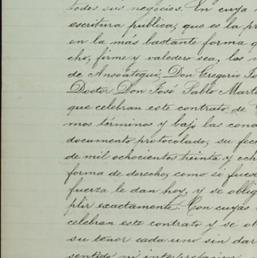 todos sus negocios. En cuya
escritura publica, que es la pr
en la más bastante forma q
cho, firme y valedero sea, los
de Anzoátegui, Don Gregorio
Doctor Don José Pablo Mart
que celebran este contrato de
mos términos y bajo las con
documento protocolado, su fec
de mil ochocientos treinta y och
forma de derecho, como si fue
fuerza le dan hoy, y se oblig
plir exactamente. Con cuyas
celebran este contrato y se ob
su tenor cada uno sin dar
sentido ni interpretacion